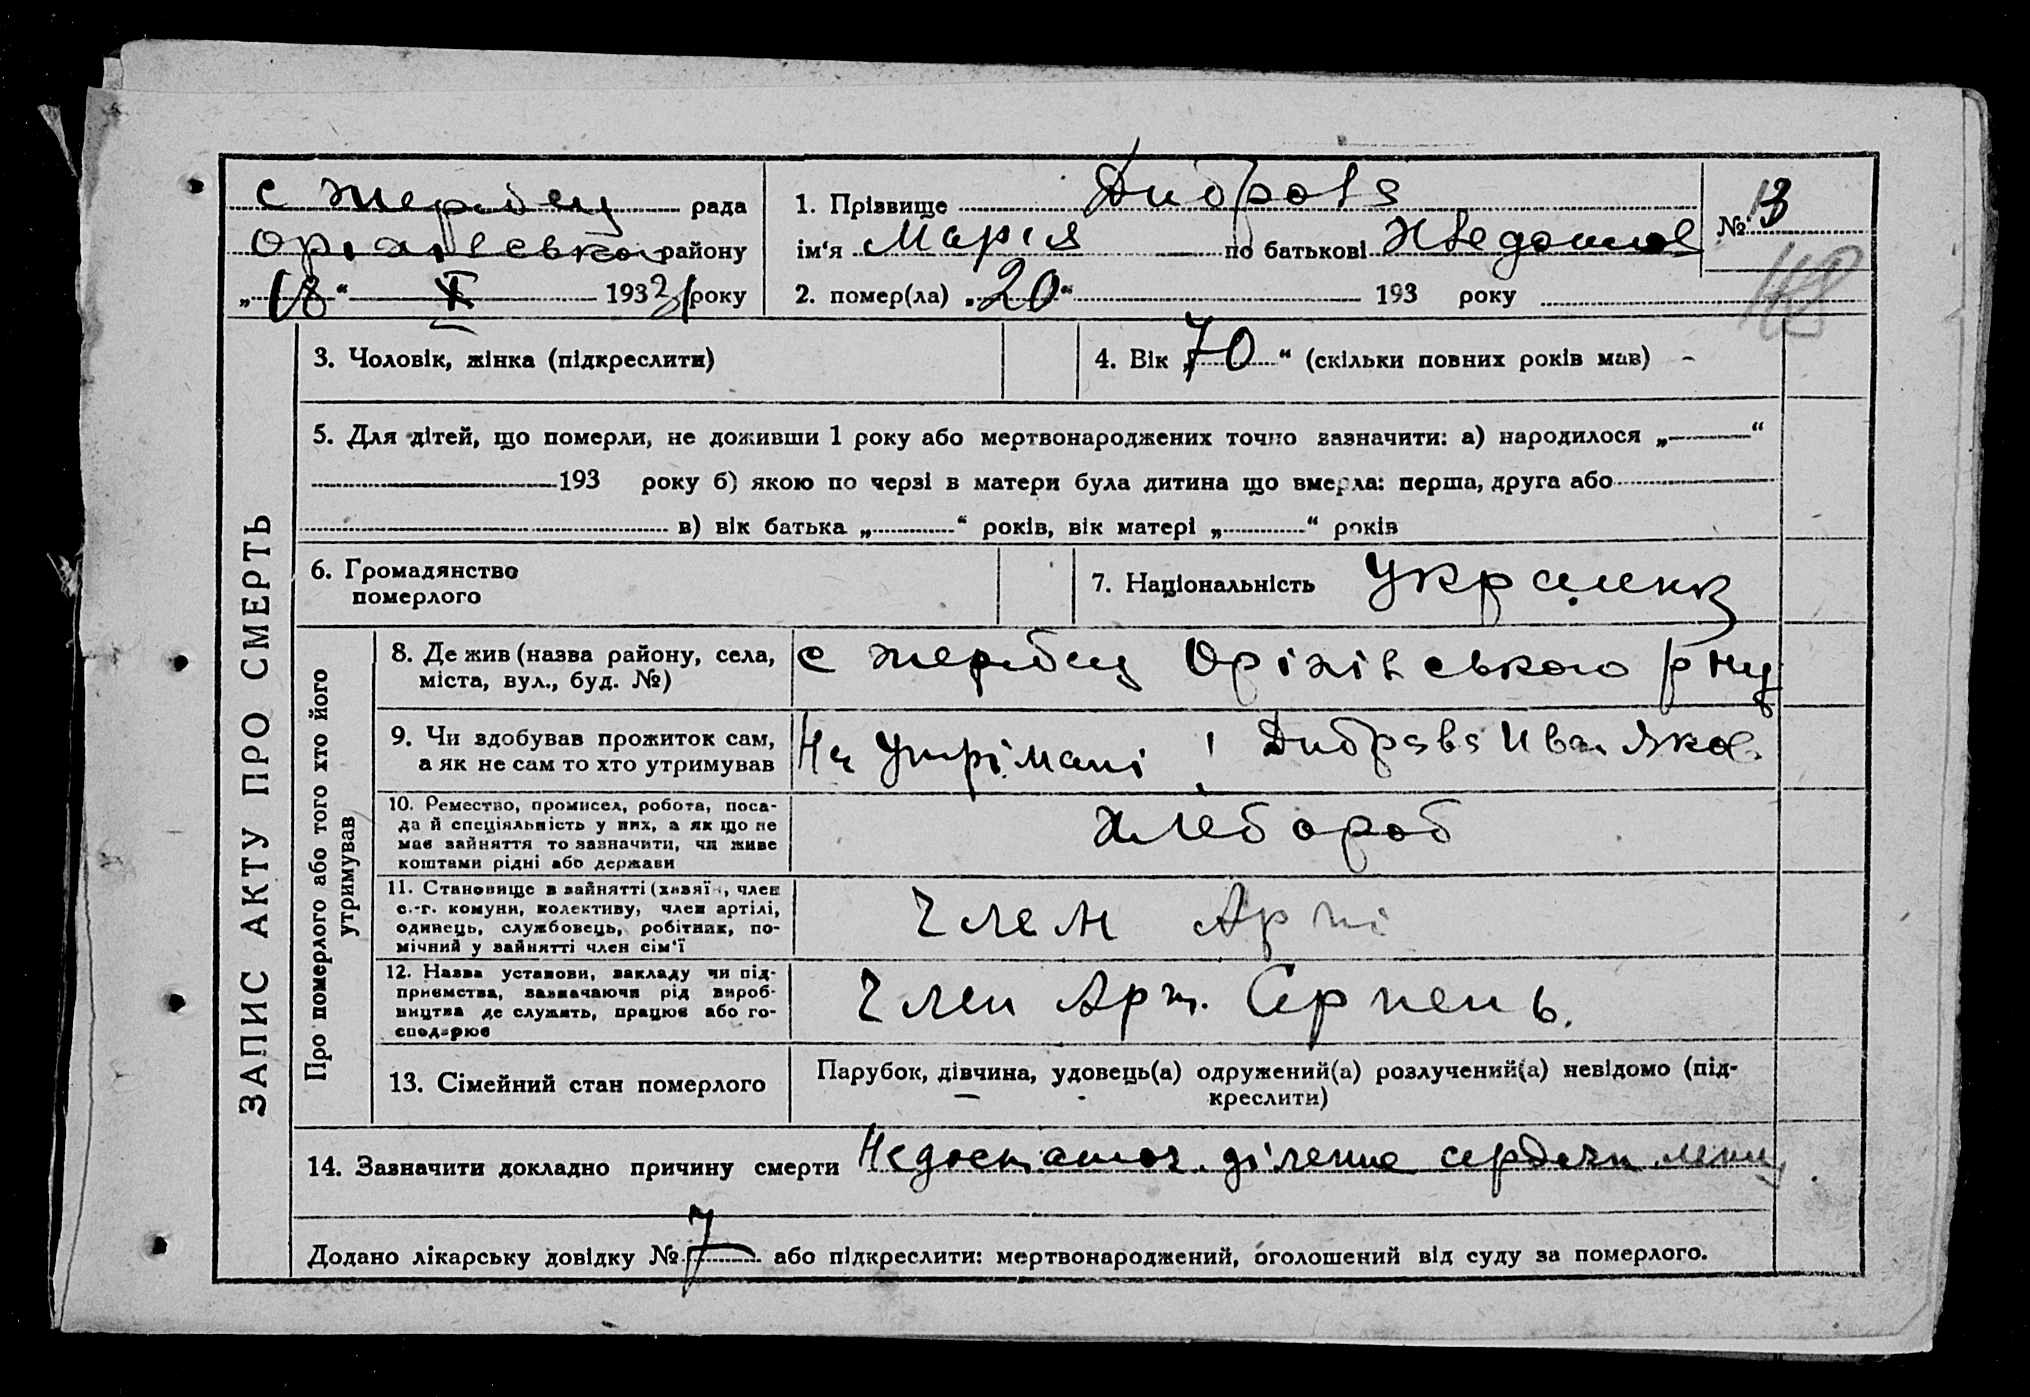 с Жеребец рада
Оріхівського району
„18“ 1932 року
1. Прізвище Диброва
ім‘я Марія по батькові
2. помер(ла) „20“ 193 року
№ 13
3. Чоловік, жінка (підкреслити)
4. Вік „70“ (скільки повних років мав)
5. Для дітей, що померли, не доживши 1 року або мертвонароджених точно зазначити: а) народилося „ “
193 року б) якою по черзі в матери була дитина що вмерла: перша, друга або
в) вік батька „ “ років, вік матері „ “ років
6. Громадянство
померлого
7. Національність Украинка
ЗАПИС АКТУ ПРО СМЕРТЬ
Про померлого або того хто його
утримував
8. Де жив (назва району, села,
міста, вул., буд. №)
с Жеребец Оріхівського р ну
9. Чи здобував прожиток сам,
а як не сам то хто утримував
На утрімані ! Диброва Иван Яков.
10. Ремество, промисел, робота, поса-
да й спеціяльність у них, а як що не
має зайняття то зазначити, чи живе
коштами рідні або держави
Хлебороб
11. Становище в зайнятті (хазяїн, член
с.-г. комуни, колективу, член артілі,
одинець, службовець, робітник, по-
мічний у зайнятті член сім‘ї
Член Арті
12. Назва установи, закладу чи під-
приємства, зазначаючи рід вироб-
ництва де служить, працює або го-
сподарює
Член Арт. Серпень.
13. Сімейний стан померлого
Парубок, дівчина, удовець(а) одружений(а) розлучений(а) невідомо (під-
креслити)
14. Зазначити докладно причину смерти
Додано лікарську довідку № 7 або підкреслити: мертвонароджений, оголошений від суду за померлого.